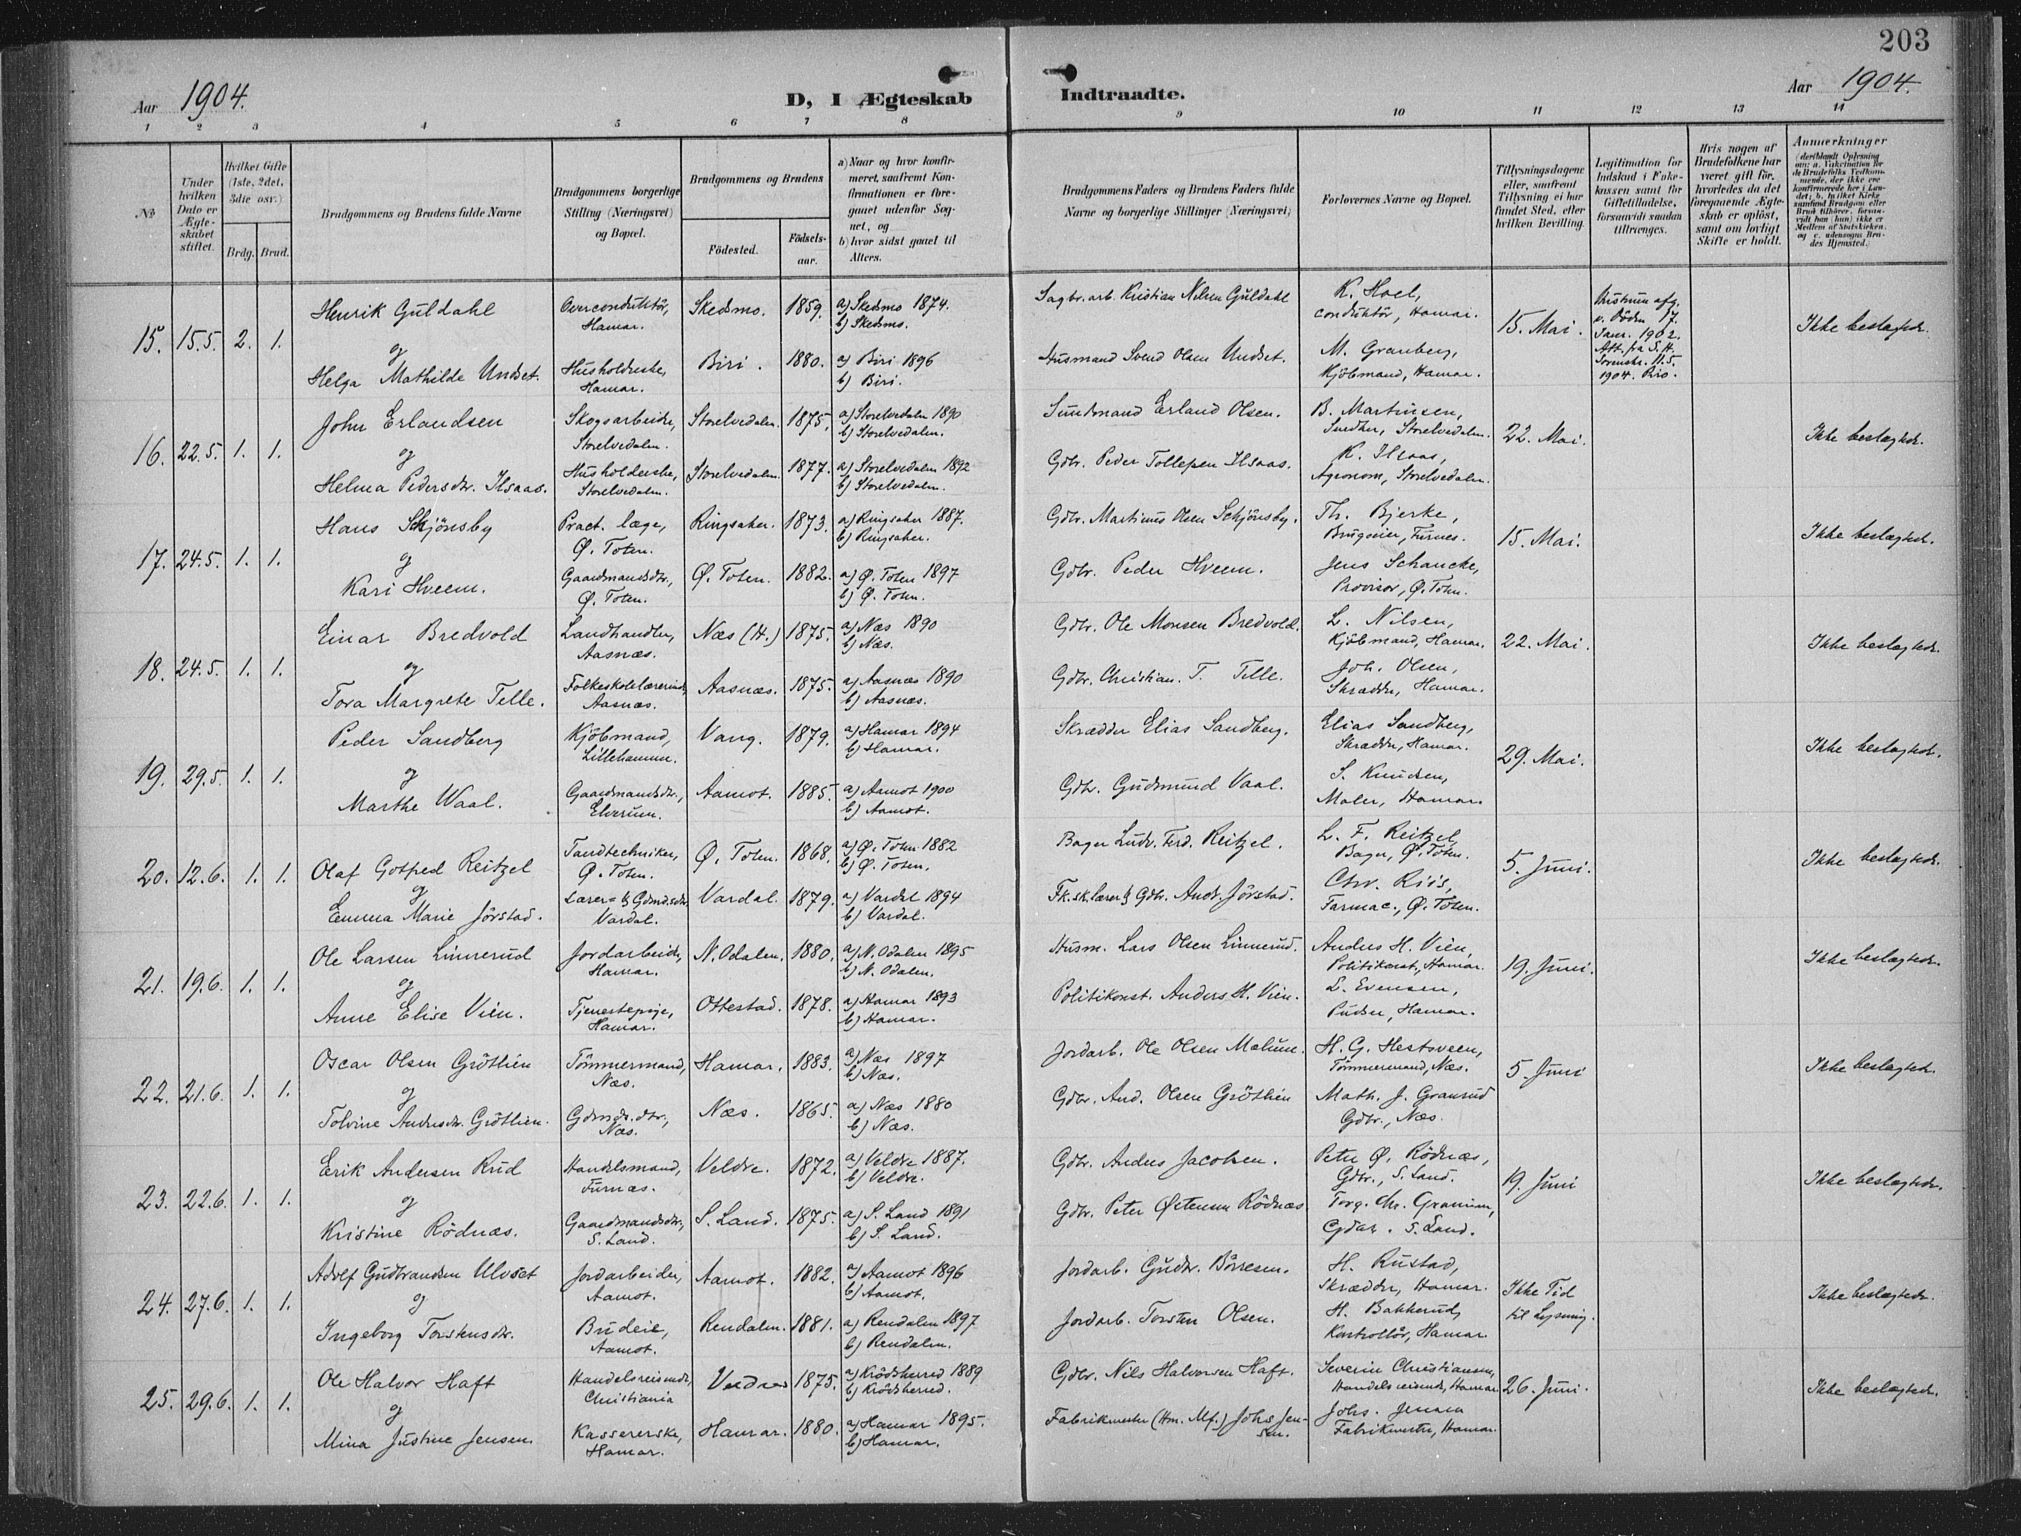 203
Aar 1904.
D, I Ægteskab Indtraadte.
Aar 1904.
1 2 3 4 5 6 7 8 9 10 11 12 13 14
No
Under hvilken Dato er Ægteskabet stiftet.
Hvilket Gifte (1ste, 2det, 3die osv.)
Brdg. Brud.
Brudgommens og Brudens fulde Navne
Brudgommens borgerlige Stilling (Næringsvei) og Bopæl.
Brudgommens og Brudens
Fødested.
Fødselsaar.
a) Naar og hvor konfirmeret, saafremt Konfirmationen er foregaaet udenfor Sognet, og
b) hvor sidst gaaet til Alters.
Brudgommens Faders og Brudens Faders fulde Navne og borgerlige Stillinger (Næringsvei)
Forlovernes Navne og Bopæl.
Tillysningsdagene eller, saafremt Tillysning ei har fundet Sted, efter hvilken Bevilling.
Legitimation for Indskud i Enkekassen samt for Giftetilladelse, forsaavidt saadan tiltrænges.
Hvis nogen af Brudefolkene har været gift før, hvorledes da det foregaaende Ægteskab er opløst, samt om lovligt Skifte er holdt.
Anmerkninger
15. 15.5. 2. 1. Henrik Guldahl Overconduktør, Hamar. Skedsmo. 1859. a) Skedsmo 1874. b) Skedsmo. Sagbr. arb. Kristian Nilsen Guldahl K. Hoel, conduktør, Hamar. 15. Mai. Ikke beslægtede.
og
Helga Mathilde Undset. Husholderske, Hamar. Biri. 1880. a) Biri 1896 b) Biri. Husmand Svend Olsen Undset. M. Granberg, Kjøbmand, Hamar.
16. 22.5. 1. 1. John Erlandsen Skogsarbeider, Storelvedalen. Storelvedalen. 1875. a) Storelvedalen 1890 b) Storelvedalen. Erland Olsen. B. Martinsen, Storelvedalen. 22. Mai. Ikke beslægtede.
og
Helma Pedersdtr. Ilsaas. Husholderske, Storelvedalen. Storelvedalen. 1877. a) Storelvedalen 1892 b) Storelvedalen. Gdbr. Peder Tollefsen Ilsaas. K. Ilsaas, Agronom, Storelvedalen.
17. 24.5. 1. 1. Hans Skjønsby Pract. læge, Ø. Toten. Ringsaker. 1873. a) Ringsaker 1887. b) Ringsaker. Gdbr. Martinus Olsen Schjønsby. Th. Bjerke, Brugseier, Furnes. 15. Mai. Ikke beslægtede.
og
Kari Hveem. Gaardmandsdtr., Ø. Toten. Ø. Toten. 1882. a) Ø. Toten 1897 b) Ø. Toten. Gdbr. Peder Hveem. Jens Schancke, Provisor, Ø. Toten.
18. 24.5. 1. 1. Einar Bredvold Landhandler, Aasnæs. Næs (H.) 1875. a) Næs 1890 b) Næs. Gdbr. Ole Monsen Bredvold. L. Nilsen, Kjøbmand, Hamar. 22. Mai. Ikke beslægtede.
og
Tora Margrete Telle. Folkeskolelærerinde, Aasnæs. Aasnæs. 1875. a) Aasnæs 1890 b) Aasnæs. Gdbr. Christian. T. Telle. Joh. Olsen, Skrædder, Hamar.
19. 29.5. 1. 1. Peder Sandberg Kjøbmand, Lillehammer. Vang. 1879. a) Hamar 1894 b) Hamar. Skrædder Elias Sandberg. Elias Sandberg, Skrædder, Hamar. 29. Mai. Ikke beslægtede.
og
Marthe Waal. Gaardmandsdtr., Elverum. Aamot. 1885. a) Aamot 1900 b) Aamot. Gdbr. Gudmund Vaal. S. Knudsen, Maler, Hamar.
20. 12.6. 1. 1. Olaf Gotfred Reitzel Tandtechniker, Ø. Toten. Ø. Toten. 1868. a) Ø. Toten 1882 b) Ø. Toten. Bager Ludv. Ferd. Reitzel. L. F. Reitzel, Bager, Ø. Toten. 5. Juni. Ikke beslægtede.
og
Emma Marie Jørstad. Lærer- & Gdmdsdtr. Vardal. Vardal. 1879. a) Vardal 1894 b) Vardal. Fk.sk.lærer & Gdbr. Andr. Jørstad. Chr. Riis, Farmac., Ø. Toten.
21. 19.6. 1. 1. Ole Larsen Linnerud Jordarbeider, Hamar. N. Odalen. 1880. a) N. Odalen 1895 b) N. Odalen. Husm. Lars Olsen Linnerud. Anders H. Vien, Politikonst., Hamar. 19. Juni. Ikke beslægtede.
og
Anne Elise Vien. Tjenestepige, Hamar. Ottestad. 1878. a) Hamar 1893 b) Hamar. Politikonst. Anders H. Vien. L. Evensen, Pudser, Hamar.
22. 21.6. 1. 1. Oscar Olsen Grøtlien Tømmermand, Næs. Hamar. 1883. a) Næs 1897 b) Næs. Jordarb. Ole Olsen Malum. H. G. Hestsveen, Tømmermand, Næs. 5. Juni Ikke beslægtede.
og
Tolvine Andersdtr. Grøtlien. Gdmds. dtr., Næs. Næs. 1865. a) Næs 1880 b) Næs. Gdbr. And. Olsen Grøtlien Math. J. Granrud Gdbr., Næs.
23. 22.6. 1. 1. Erik Andersen Rud Handelsmand, Furnæs. Veldre. 1872. a) Veldre 1887. b) Veldre. Gdbr. Anders Jacobsen. Peter Ø. Rødnæs, Gdbr., S. Land. 19. Juni Ikke beslægtede.
og
Kristine Rødnæs. Gaardmandsdtr., S. Land. S. Land. 1875. a) S. Land 1891 b) S. Land. Gdbr. Peter Østensen Rødnæs Torg. Chr. S. Land.
24. 27.6. 1. 1. Adolf Gudbrandsen Ulvset Jordarbeider, Aamot. Aamot. 1882. a) Aamot 1896 b) Aamot. Jordarb. Gudbr. Børresen. H. Rustad, Skrædder, Hamar. Ikke Tid til Lysning. Ikke beslægtede.
og
Ingeborg Torstensdtr. Budeie, Aamot. Rendalen. 1881. a) Rendalen 1897 b) Rendalen. Jordarb. Torsten Olsen. H. Bakkerud, Kontrollør, Hamar
25. 29.6. 1. 1. Ole Halvor Haft Handelsreisende, Christiania 1875. a) Krødsherred 1889 b) Krødsherred. Gdbr. Nils Halvorsen Haft. Severin Christiansen, Handelsreisende, Hamar 26. Juni. Ikke beslægtede.
og
Mina Justine Jensen. Kassererske, Hamar. Hamar. 1880. a) Hamar 1895. b) Hamar. Fabrikmester (Hm. Mf.) Johs Jensen. Johs. Jensen Fabrikmester, Hamar.